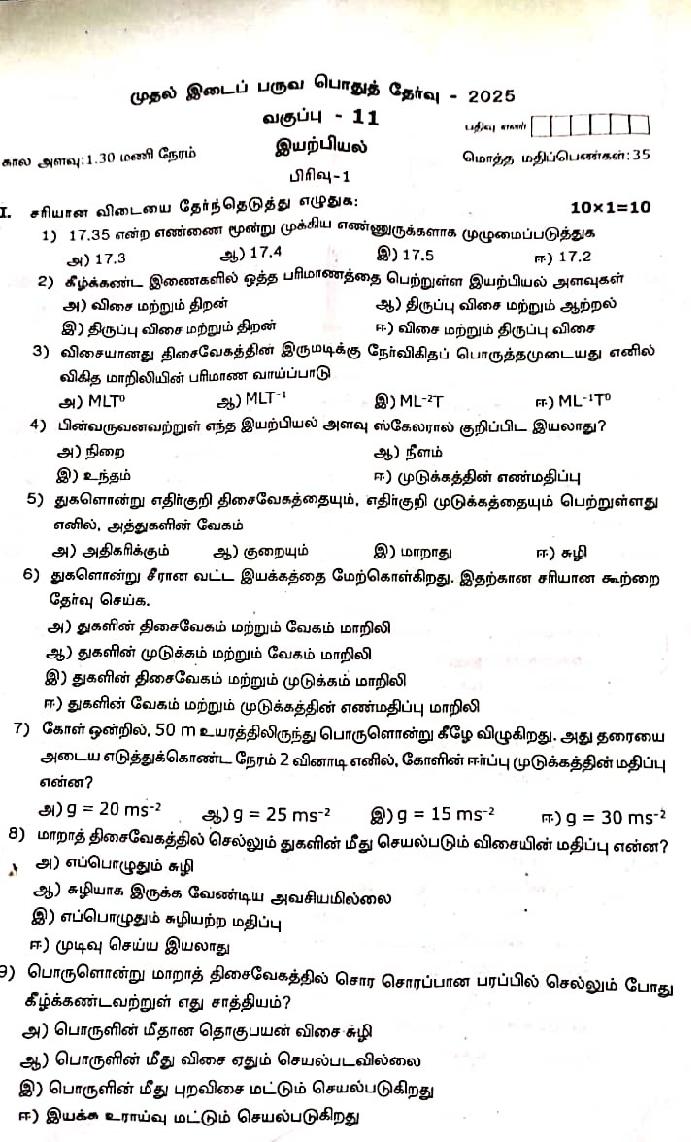 முதல் இடைப் பருவ பொதுத் தேர்வு - 2025
வகுப்பு - 11
பதிவு எண்
கால அளவு:1.30 மணி நேரம்
இயற்பியல்
மொத்த மதிப்பெண்கள்:35
பிரிவு-1
I. சரியான விடையை தேர்ந்தெடுத்து எழுதுக: 10×1=10
1) 17.35 என்ற எண்ணை மூன்று முக்கிய எண்ணுருக்களாக முழுமைப்படுத்துக
அ) 17.3 ஆ) 17.4 இ) 17.5 ஈ) 17.2
2) கீழ்க்கண்ட இணைகளில் ஒத்த பரிமாணத்தை பெற்றுள்ள இயற்பியல் அளவுகள்
அ) விசை மற்றும் திறன் ஆ) திருப்பு விசை மற்றும் ஆற்றல்
இ) திருப்பு விசை மற்றும் திறன் ஈ) விசை மற்றும் திருப்பு விசை
3) விசையானது திசைவேகத்தின் இருமடிக்கு நேர்விகிதப் பொருத்தமுடையது எனில்
விகித மாறிலியின் பரிமாண வாய்ப்பாடு
அ) MLT⁰ ஆ) MLT⁻¹ இ) ML⁻²T ஈ) ML⁻¹T⁰
4) பின்வருவனவற்றுள் எந்த இயற்பியல் அளவு ஸ்கேலரால் குறிப்பிட இயலாது?
அ) நிறை ஆ) நீளம்
இ) உந்தம் ஈ) முடுக்கத்தின் எண்மதிப்பு
5) துகளொன்று எதிர்குறி திசைவேகத்தையும், எதிர்குறி முடுக்கத்தையும் பெற்றுள்ளது
எனில், அத்துகளின் வேகம்
அ) அதிகரிக்கும் ஆ) குறையும் இ) மாறாது ஈ) சுழி
6) துகளொன்று சீரான வட்ட இயக்கத்தை மேற்கொள்கிறது. இதற்கான சரியான கூற்றை
தேர்வு செய்க.
அ) துகளின் திசைவேகம் மற்றும் வேகம் மாறிலி
ஆ) துகளின் முடுக்கம் மற்றும் வேகம் மாறிலி
இ) துகளின் திசைவேகம் மற்றும் முடுக்கம் மாறிலி
ஈ) துகளின் வேகம் மற்றும் முடுக்கத்தின் எண்மதிப்பு மாறிலி
7) கோள் ஒன்றில், 50 m உயரத்திலிருந்து பொருளொன்று கீழே விழுகிறது. அது தரையை
அடைய எடுத்துக்கொண்ட நேரம் 2 வினாடி எனில், கோளின் ஈர்ப்பு முடுக்கத்தின் மதிப்பு
என்ன?
அ) g = 20 ms⁻² ஆ) g = 25 ms⁻² இ) g = 15 ms⁻² ஈ) g = 30 ms⁻²
8) மாறாத் திசைவேகத்தில் செல்லும் துகளின் மீது செயல்படும் விசையின் மதிப்பு என்ன?
அ) எப்பொழுதும் சுழி
ஆ) சுழியாக இருக்க வேண்டிய அவசியமில்லை
இ) எப்பொழுதும் சுழியற்ற மதிப்பு
ஈ) முடிவு செய்ய இயலாது
9) பொருளொன்று மாறாத் திசைவேகத்தில் சொர சொரப்பான பரப்பில் செல்லும் போது
கீழ்க்கண்டவற்றுள் எது சாத்தியம்?
அ) பொருளின் மீதான தொகுபயன் விசை சுழி
ஆ) பொருளின் மீது விசை ஏதும் செயல்படவில்லை
இ) பொருளின் மீது புறவிசை மட்டும் செயல்படுகிறது
ஈ) இயக்க உராய்வு மட்டும் செயல்படுகிறது